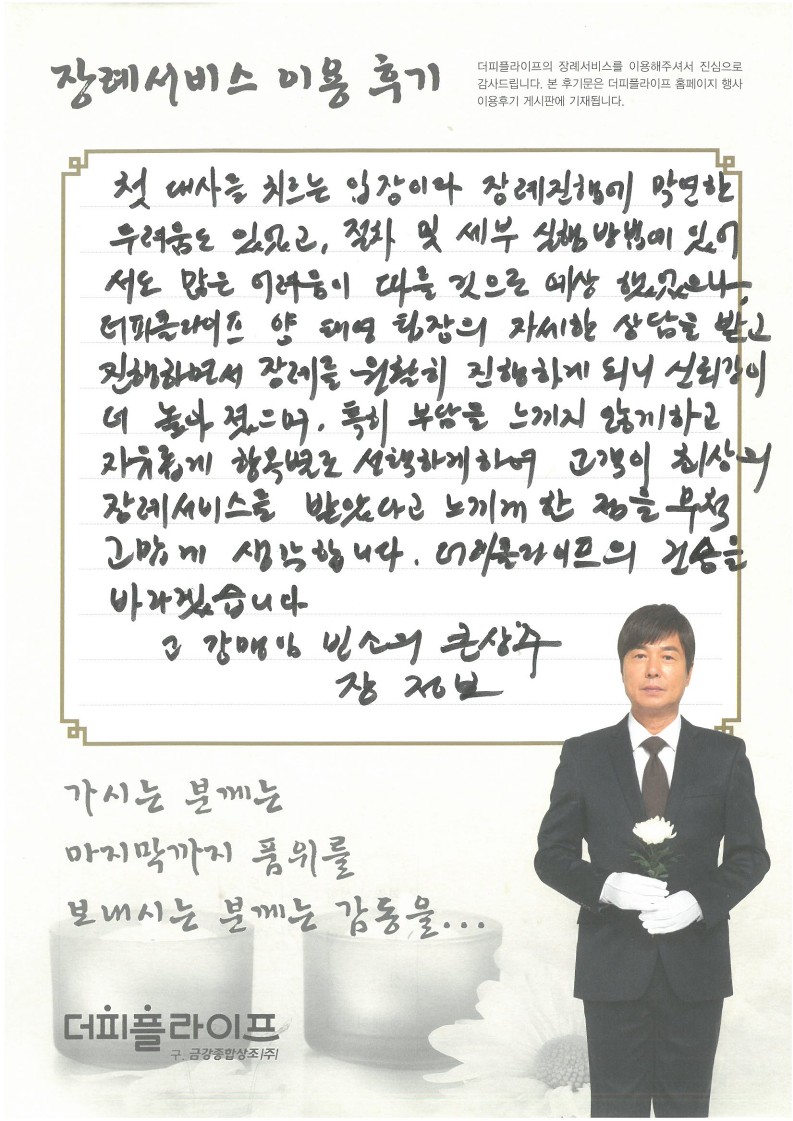 장례서비스 이용 후기
더피플라이프의 장례서비스를 이용해주셔서 진심으로
감사드립니다. 본 후기문은 더피플라이프 홈페이지 행사
이용후기 게시판에 기재됩니다.
첫 대사를 치르는 입장이라 장례진행에 막연한
두려움도 있었고, 절차 및 세부 실행방법에 있어
서도 많은 어려움이 따를 것으로 예상 했었으나,
더피플라이프 양 태영 팀장의 자세한 상담을 받고
진행하여서 장례를 원활히 진행하게 되니 신뢰감이
더 높아 졌으며, 특히 부담을 느끼지 않게하고
자유롭게 항목별로 선택하게하여 고객이 최상의
장례서비스를 받았다고 느끼게 한 점을 무척
고맙게 생각합니다. 더피플라이프의 건승을
바라겠습니다
고 강매임 빈소의 큰상주
장 정보
가시는 분께는
마지막까지 품위를
보내시는 분께는 감동을...
더피플라이프
구. 금강종합상조(주)